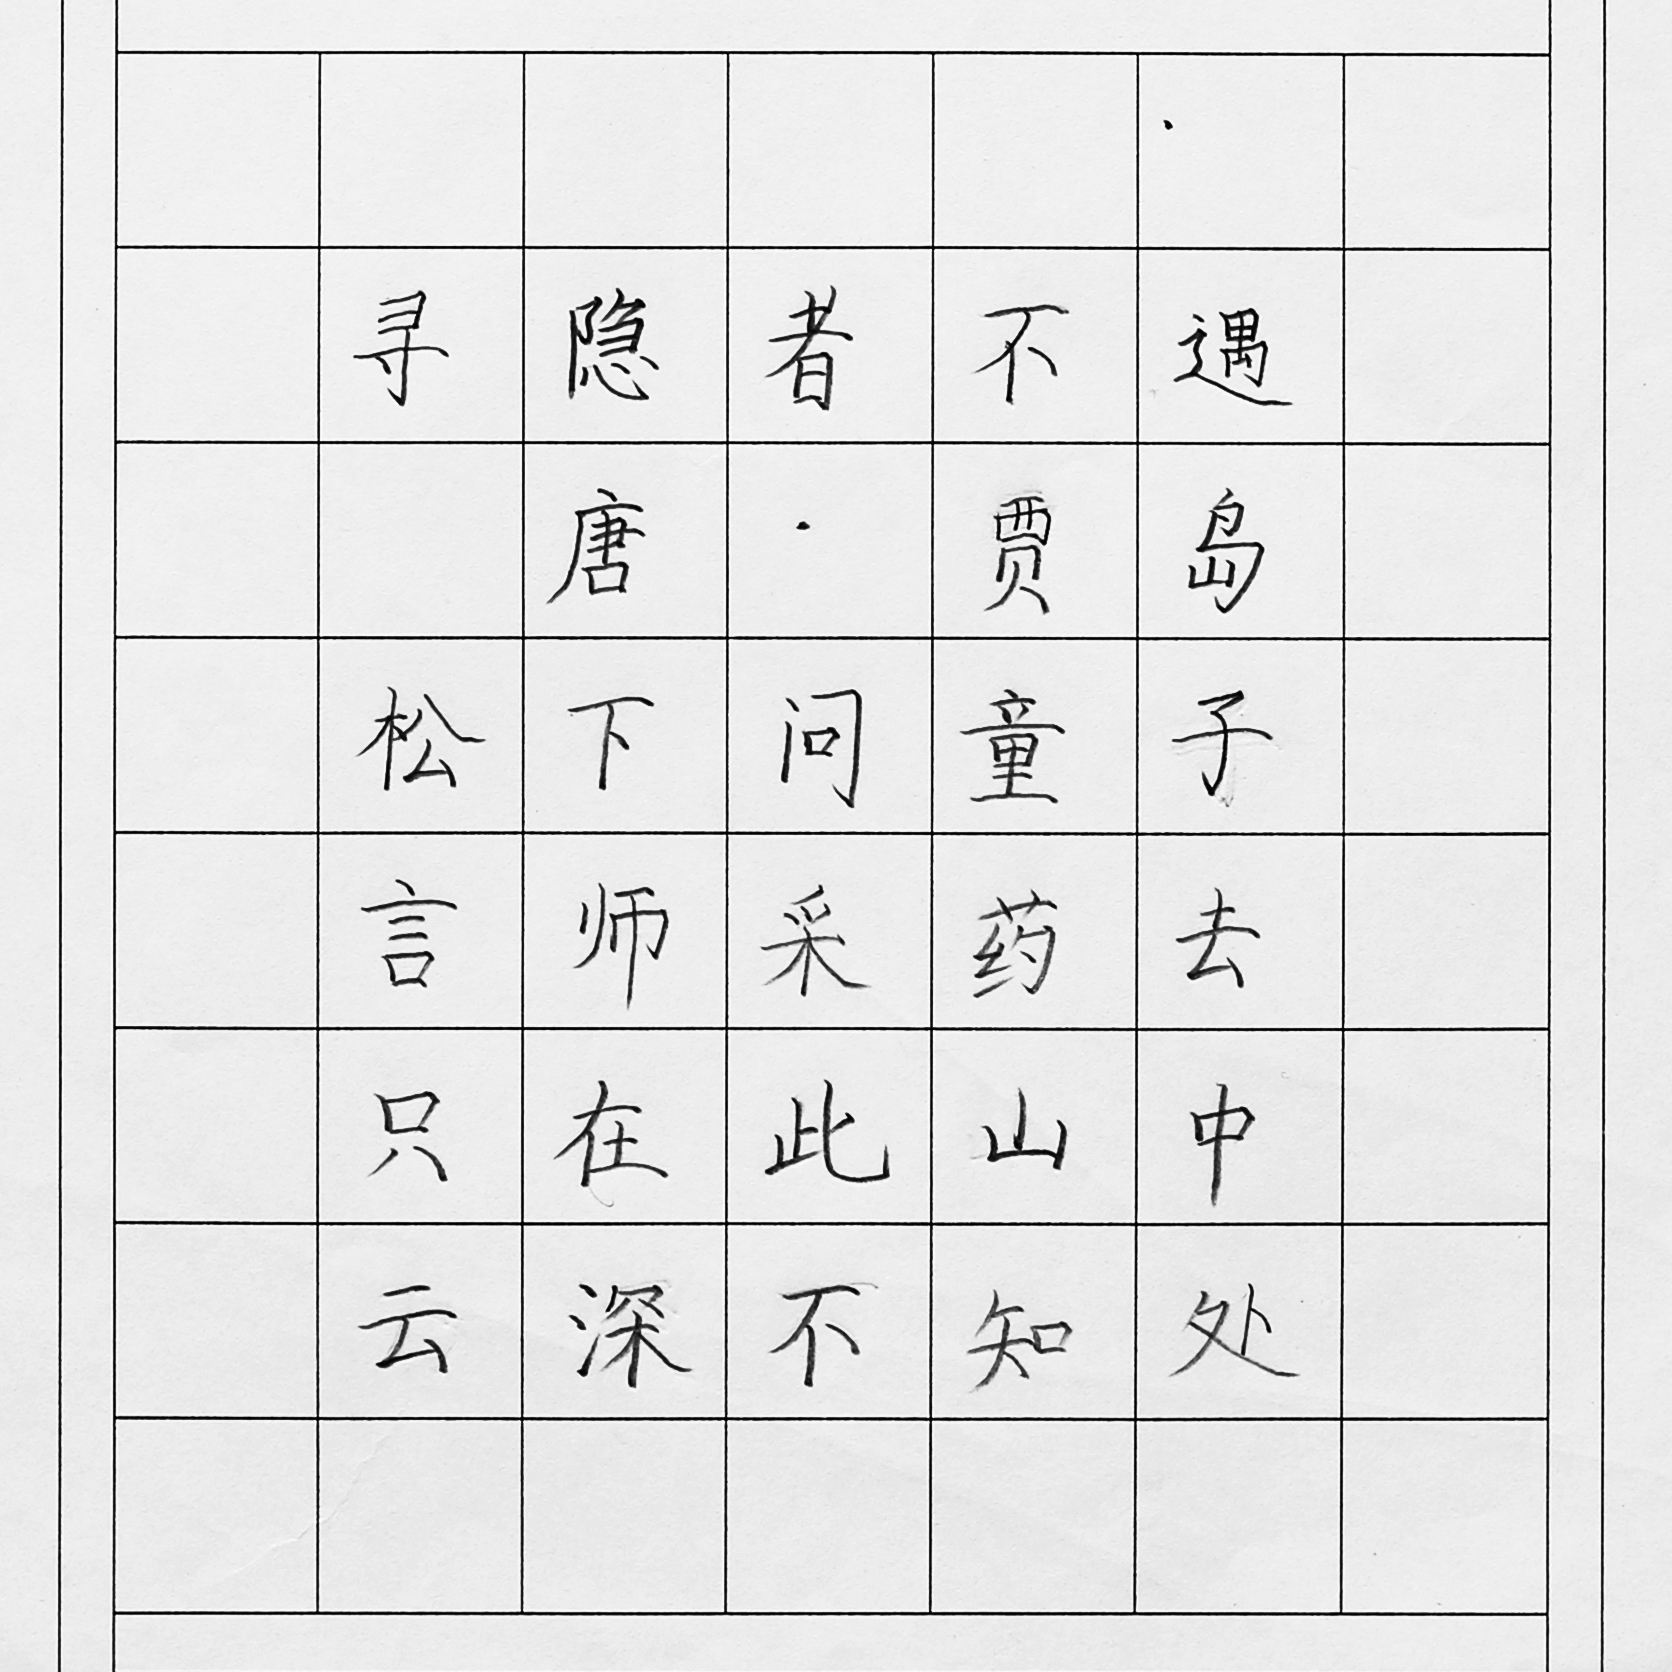 寻隐者不遇
唐·贾岛
松下问童子
言师采药去
只在此山中
云深不知处